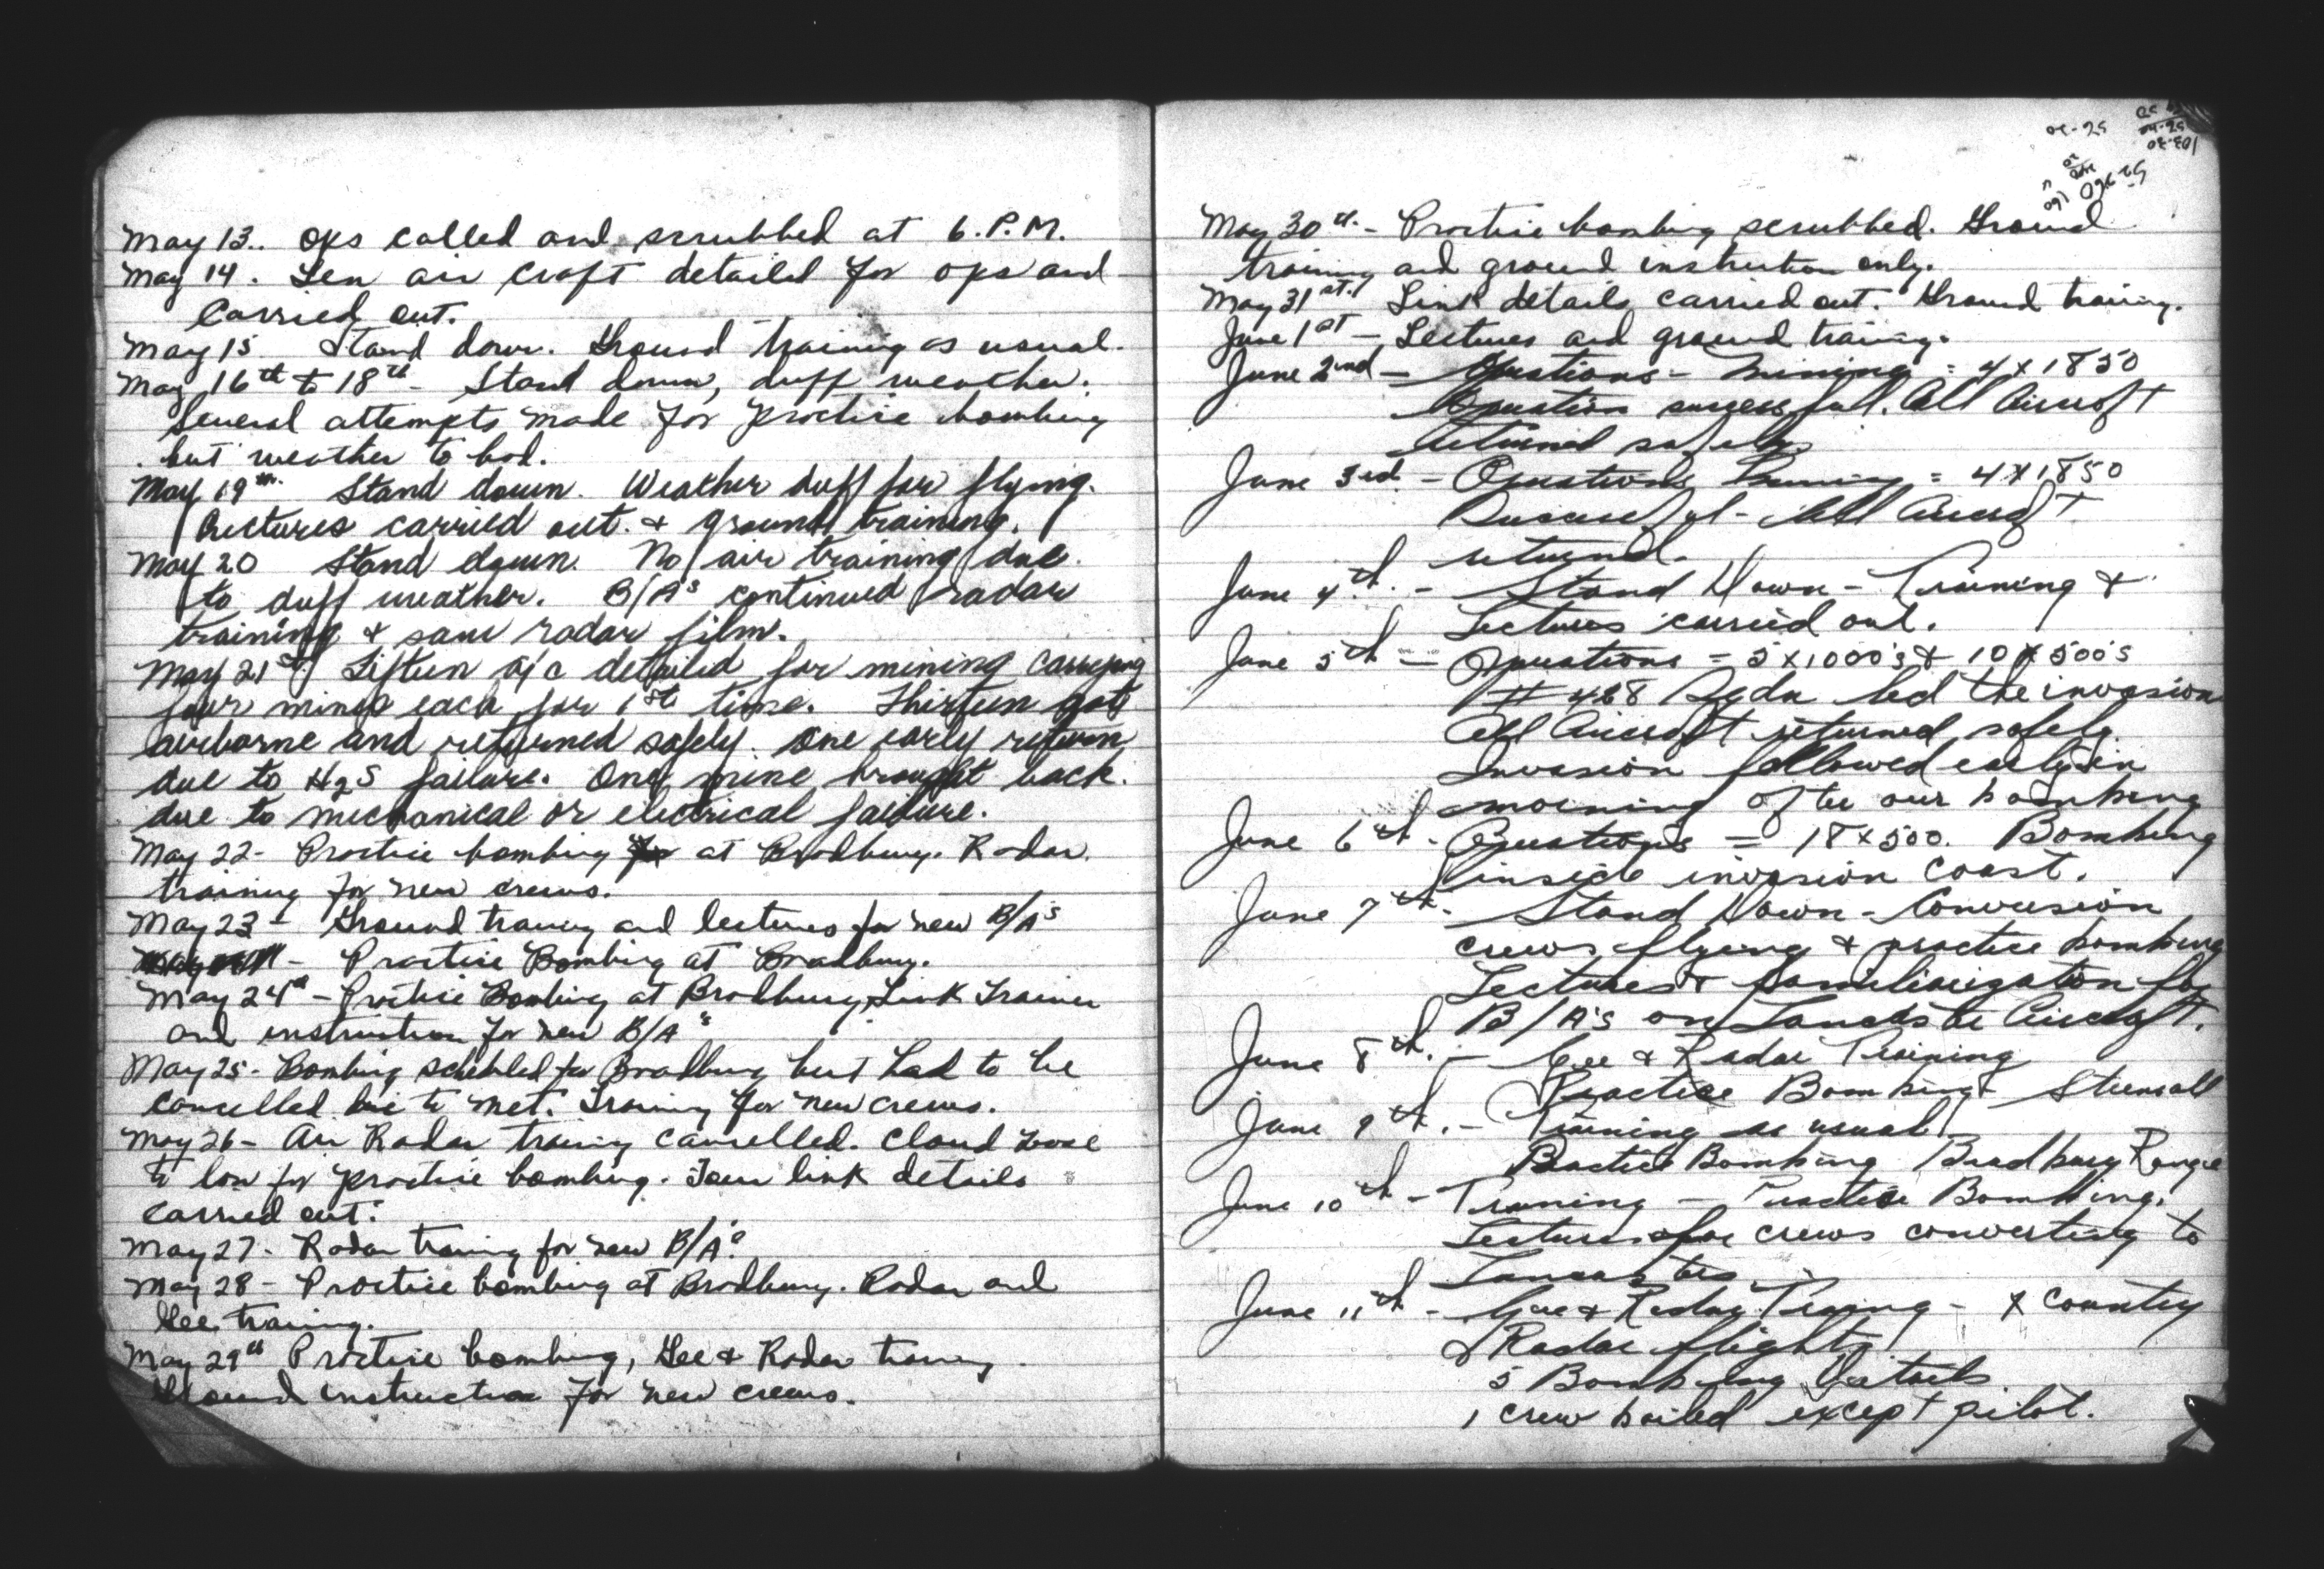 May 13. Ops called and scrubbed at 6. P.M.
May 14. Ten air craft detailed for ops and
carried out.
May 15 Stand down. Ground training as usual.
May 16th to 18th - Stand down, duff weather.
Several attempts made for practice bombing
but weather to bad.
May 19th. Stand down. Weather duff for flying.
Lectures carried out. & ground training.
May 20 Stand down. No air training due
to duff weather. B/A's continued radar
training & saw radar film.
May 21st. Fifteen a/c detailed for mining carrying
four mines each for 1st time. Thirteen got
airborne and returned safely. One early return
due to H2S failure. One mine brought back
due to mechanical or electrical failure.
May 22 - Practice bombing at Bradbury. Radar
training for new crews.
May 23 - Ground training and lectures for new B/A's
- Practice Bombing at Bradbury.
May 24th - Practice Bombing at Bradbury, Link Trainer
and instruction for new B/A's
May 25 - Bombing scheduled for Bradbury but had to be
cancelled due to met. Training for new crews.
May 26 - Air Radar training cancelled. Cloud base
to low for practice bombing. Four link details
carried out.
May 27 - Radar training for new B/A's
May 28 - Practice bombing at Bradbury. Radar and
Gee training.
May 29th Practice bombing, Gee & Radar training.
Ground instruction for new crews.
May 30th - Practice bombing scrubbed. Ground
training and ground instruction only.
May 31st. Link details carried out. Ground training.
June 1st - Lectures and ground training.
June 2nd - Operations - Mining = 4 x 1850
Operation successfull. All Aircraft
returned safely.
June 3rd - Operations Mining = 4 x 1850
Successful - All Aircraft
returned.
June 4th. - Stand Down - Training &
Lectures carried out.
June 5th - Operations = 5 x 1000's & 10 x 500's
# 428 Sqdn led the invasion
All Aircraft returned safely.
Invasion followed early in
morning after our bombing
June 6th - Operations = 18 x 500. Bombing
inside invasion coast.
June 7th. - Stand Down - Conversion
crews flying & practice bombing
Lectures & familiarization for
B/A's on Lancaster Aircraft.
June 8th. - Gee & Radar Training
Practice Bombing Strensall
June 9th. - Training as usual
Practice Bombing Bradbury Range
June 10th - Training - Practice Bombing.
Lectures for crews converting to
Lancasters.
June 11th - Gee & Radar Training - X Country
& Radar flights
5 Bombing Details
1 crew bailed except pilot.